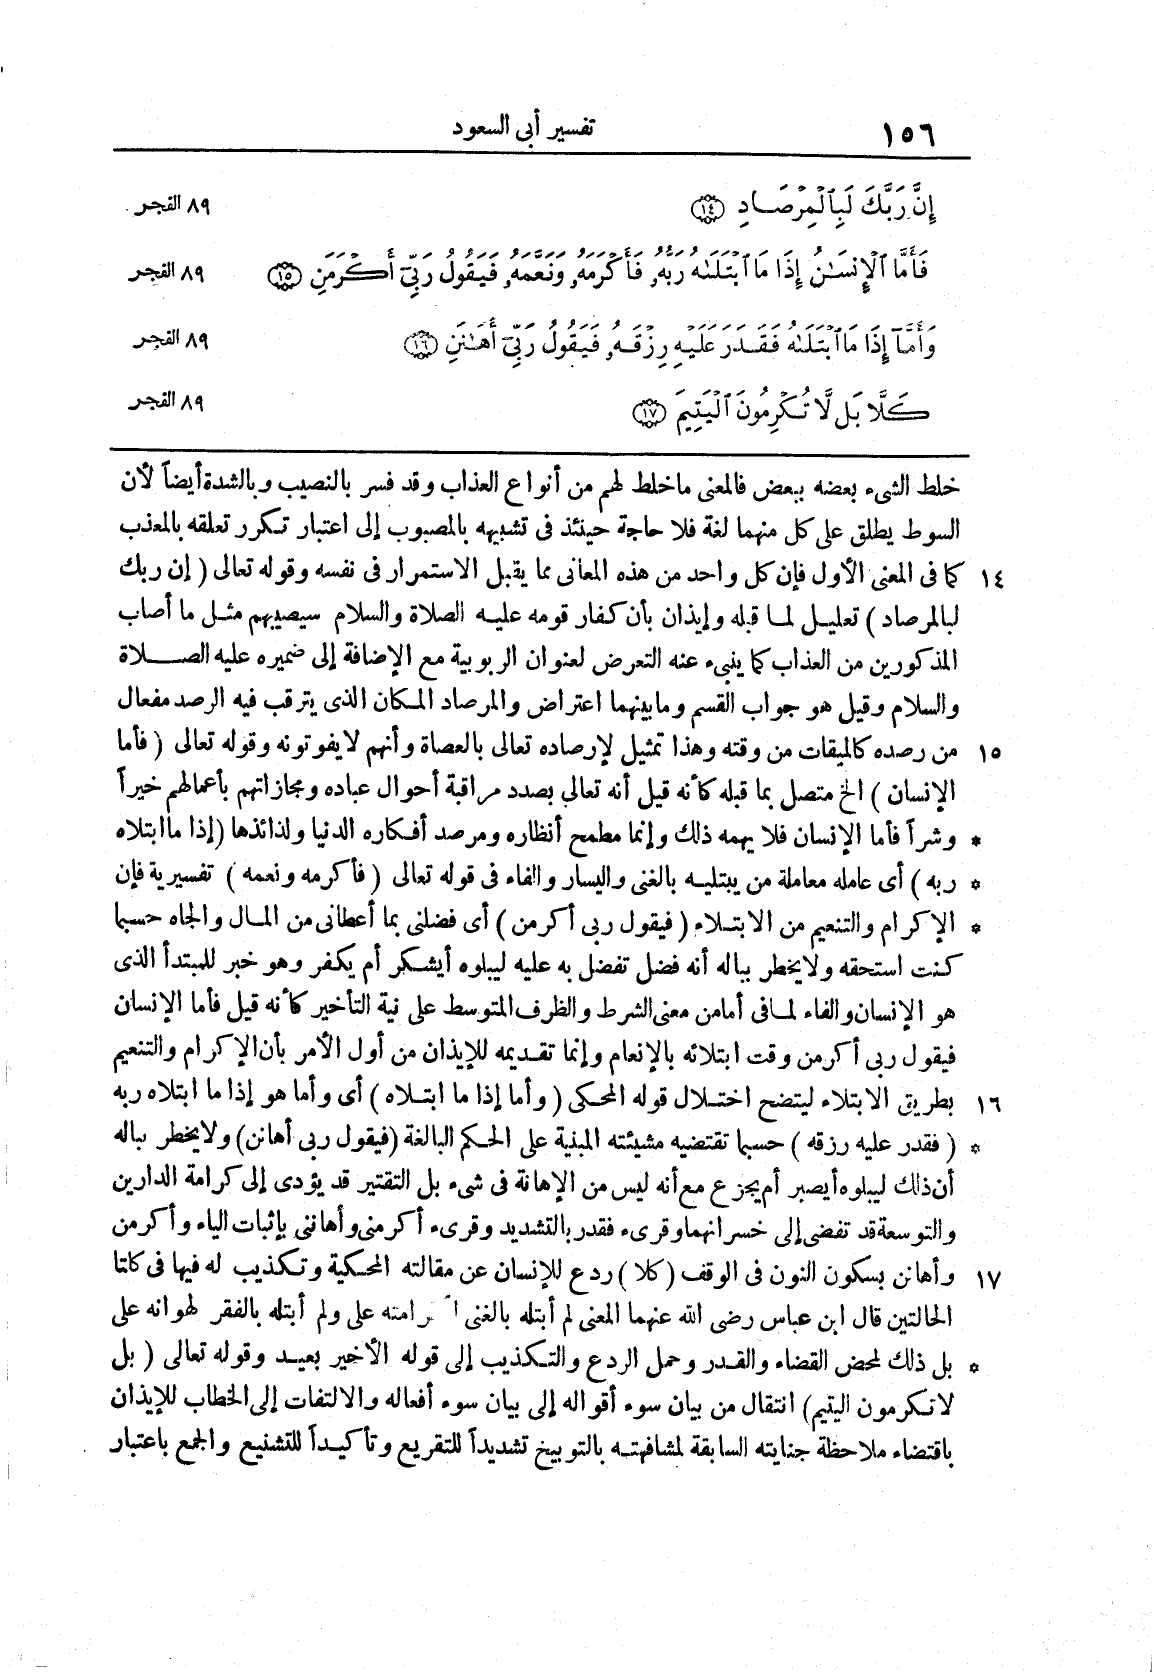 ١٥٦ تفسير أبى السعود
إِنَّ رَبَّكَ لَبِٱلْمِرْصَادِ ١٤ ٨٩ الفجر
فَأَمَّا ٱلْإِنسَـٰنُ إِذَا مَا ٱبْتَلَـٰهُ رَبُّهُۥ فَأَكْرَمَهُۥ وَنَعَّمَهُۥ فَيَقُولُ رَبِّىٓ أَكْرَمَنِ ١٥ ٨٩ الفجر
وَأَمَّآ إِذَا مَا ٱبْتَلَـٰهُ فَقَدَرَ عَلَيْهِ رِزْقَهُۥ فَيَقُولُ رَبِّىٓ أَهَـٰنَنِ ١٦ ٨٩ الفجر
كَلَّا بَل لَّا تُكْرِمُونَ ٱلْيَتِيمَ ١٧ ٨٩ الفجر
خلط الشىء بعضه ببعض فالمعنى ماخلط لهم من أنواع العذاب وقد فسر بالنصيب وبالشدة أيضاً لأن
السوط يطلق على كل منهما لغة فلا حاجة حينئذ فى تشبيهه بالمصبوب إلى اعتبار تكرر تعلقه بالمعذب
١٤ كما فى المعنى الأول فإن كل واحد من هذه المعانى مما يقبل الاستمرار فى نفسه وقوله تعالى ( إن ربك
لبالمرصاد ) تعليل لما قبله وإيذان بأن كفار قومه عليه الصلاة والسلام سيصيبهم مثل ما أصاب
المذكورين من العذاب كما ينبىء عنه التعرض لعنوان الربوبية مع الإضافة إلى ضميره عليه الصلاة
والسلام وقيل هو جواب القسم ومابينهما اعتراض والمرصاد المكان الذى يترقب فيه الرصد مفعال
١٥ من رصده كالميقات من وقته وهذا تمثيل لإرصاده تعالى بالعصاة وأنهم لايفوتونه وقوله تعالى ( فأما
الإنسان ) الخ متصل بما قبله كأنه قيل أنه تعالى بصدد مراقبة أحوال عباده ومجازاتهم بأعمالهم خيراً
* وشراً فأما الإنسان فلا يهمه ذلك وإنما مطمح أنظاره ومرصد أفكاره الدنيا ولذائذها (إذا ماابتلاه
* ربه ) أى عامله معاملة من يبتليه بالغنى واليسار والفاء فى قوله تعالى ( فأكرمه ونعمه ) تفسيرية فإن
* الإكرام والتنعيم من الابتلاء ( فيقول ربى أكرمن ) أى فضلنى بما أعطانى من المال والجاه حسبما
كنت استحقه ولايخطر بباله أنه فضل تفضل به عليه ليبلوه أيشكر أم يكفر وهو خبر للمبتدأ الذى
هو الإنسان والفاء لمافى أمامن معنى الشرط والظرف المتوسط على نية التأخير كأنه قيل فأما الإنسان
فيقول ربى أكرمن وقت ابتلائه بالإنعام وإنما تقديمه للإيذان من أول الأمر بأن الإكرام والتنعيم
١٦ بطريق الابتلاء ليتضح اختلال قوله المحكى ( وأما إذا ما ابتلاه ) أى وأما هو إذا ما ابتلاه ربه
* ( فقدر عليه رزقه ) حسبما تقتضيه مشيئته المبنية على الحكم البالغة (فيقول ربى أهانن) ولايخطر بباله
أن ذلك ليبلوه أيصبر أم يجزع مع أنه ليس من الإهانة فى شىء بل التقتير قد يؤدى إلى كرامة الدارين
والتوسعة قد تفضى إلى خسرانهما وقرىء فقدر بالتشديد وقرىء أكرمنى وأهاننى بإثبات الياء وأكرمن
١٧ وأهانن بسكون النون فى الوقف ( كلا ) ردع للإنسان عن مقالته المحكية وتكذيب له فيها فى كلتا
الحالتين قال ابن عباس رضى الله عنهما المعنى لم أبتله بالغنى على ولم أبتله بالفقر لهوانه على
* بل ذلك لمحض القضاء والقدر وحمل الردع والتكذيب إلى قوله الأخير بعيد وقوله تعالى ( بل
لاتكرمون اليتيم) انتقال من بيان سوء أقواله إلى بيان سوء أفعاله والالتفات إلى الخطاب للإيذان
باقتضاء ملاحظة جنايته السابقة لمشافهته بالتوبيخ تشديداً للتقريع وتأكيداً للتشنيع والجمع باعتبار